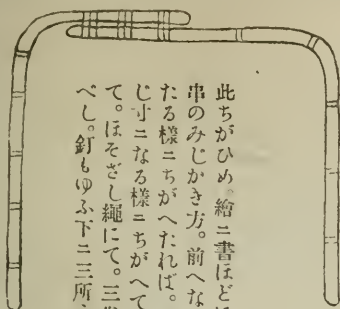 此ちがひめ。繪ニ書ほど
串のみじかき方。前へな
たる樣ニちがへたれば。
じ寸ニなる樣ニちがへて
て。ほそざし繩にて。三
べし。釘もゆふ下ニ三所